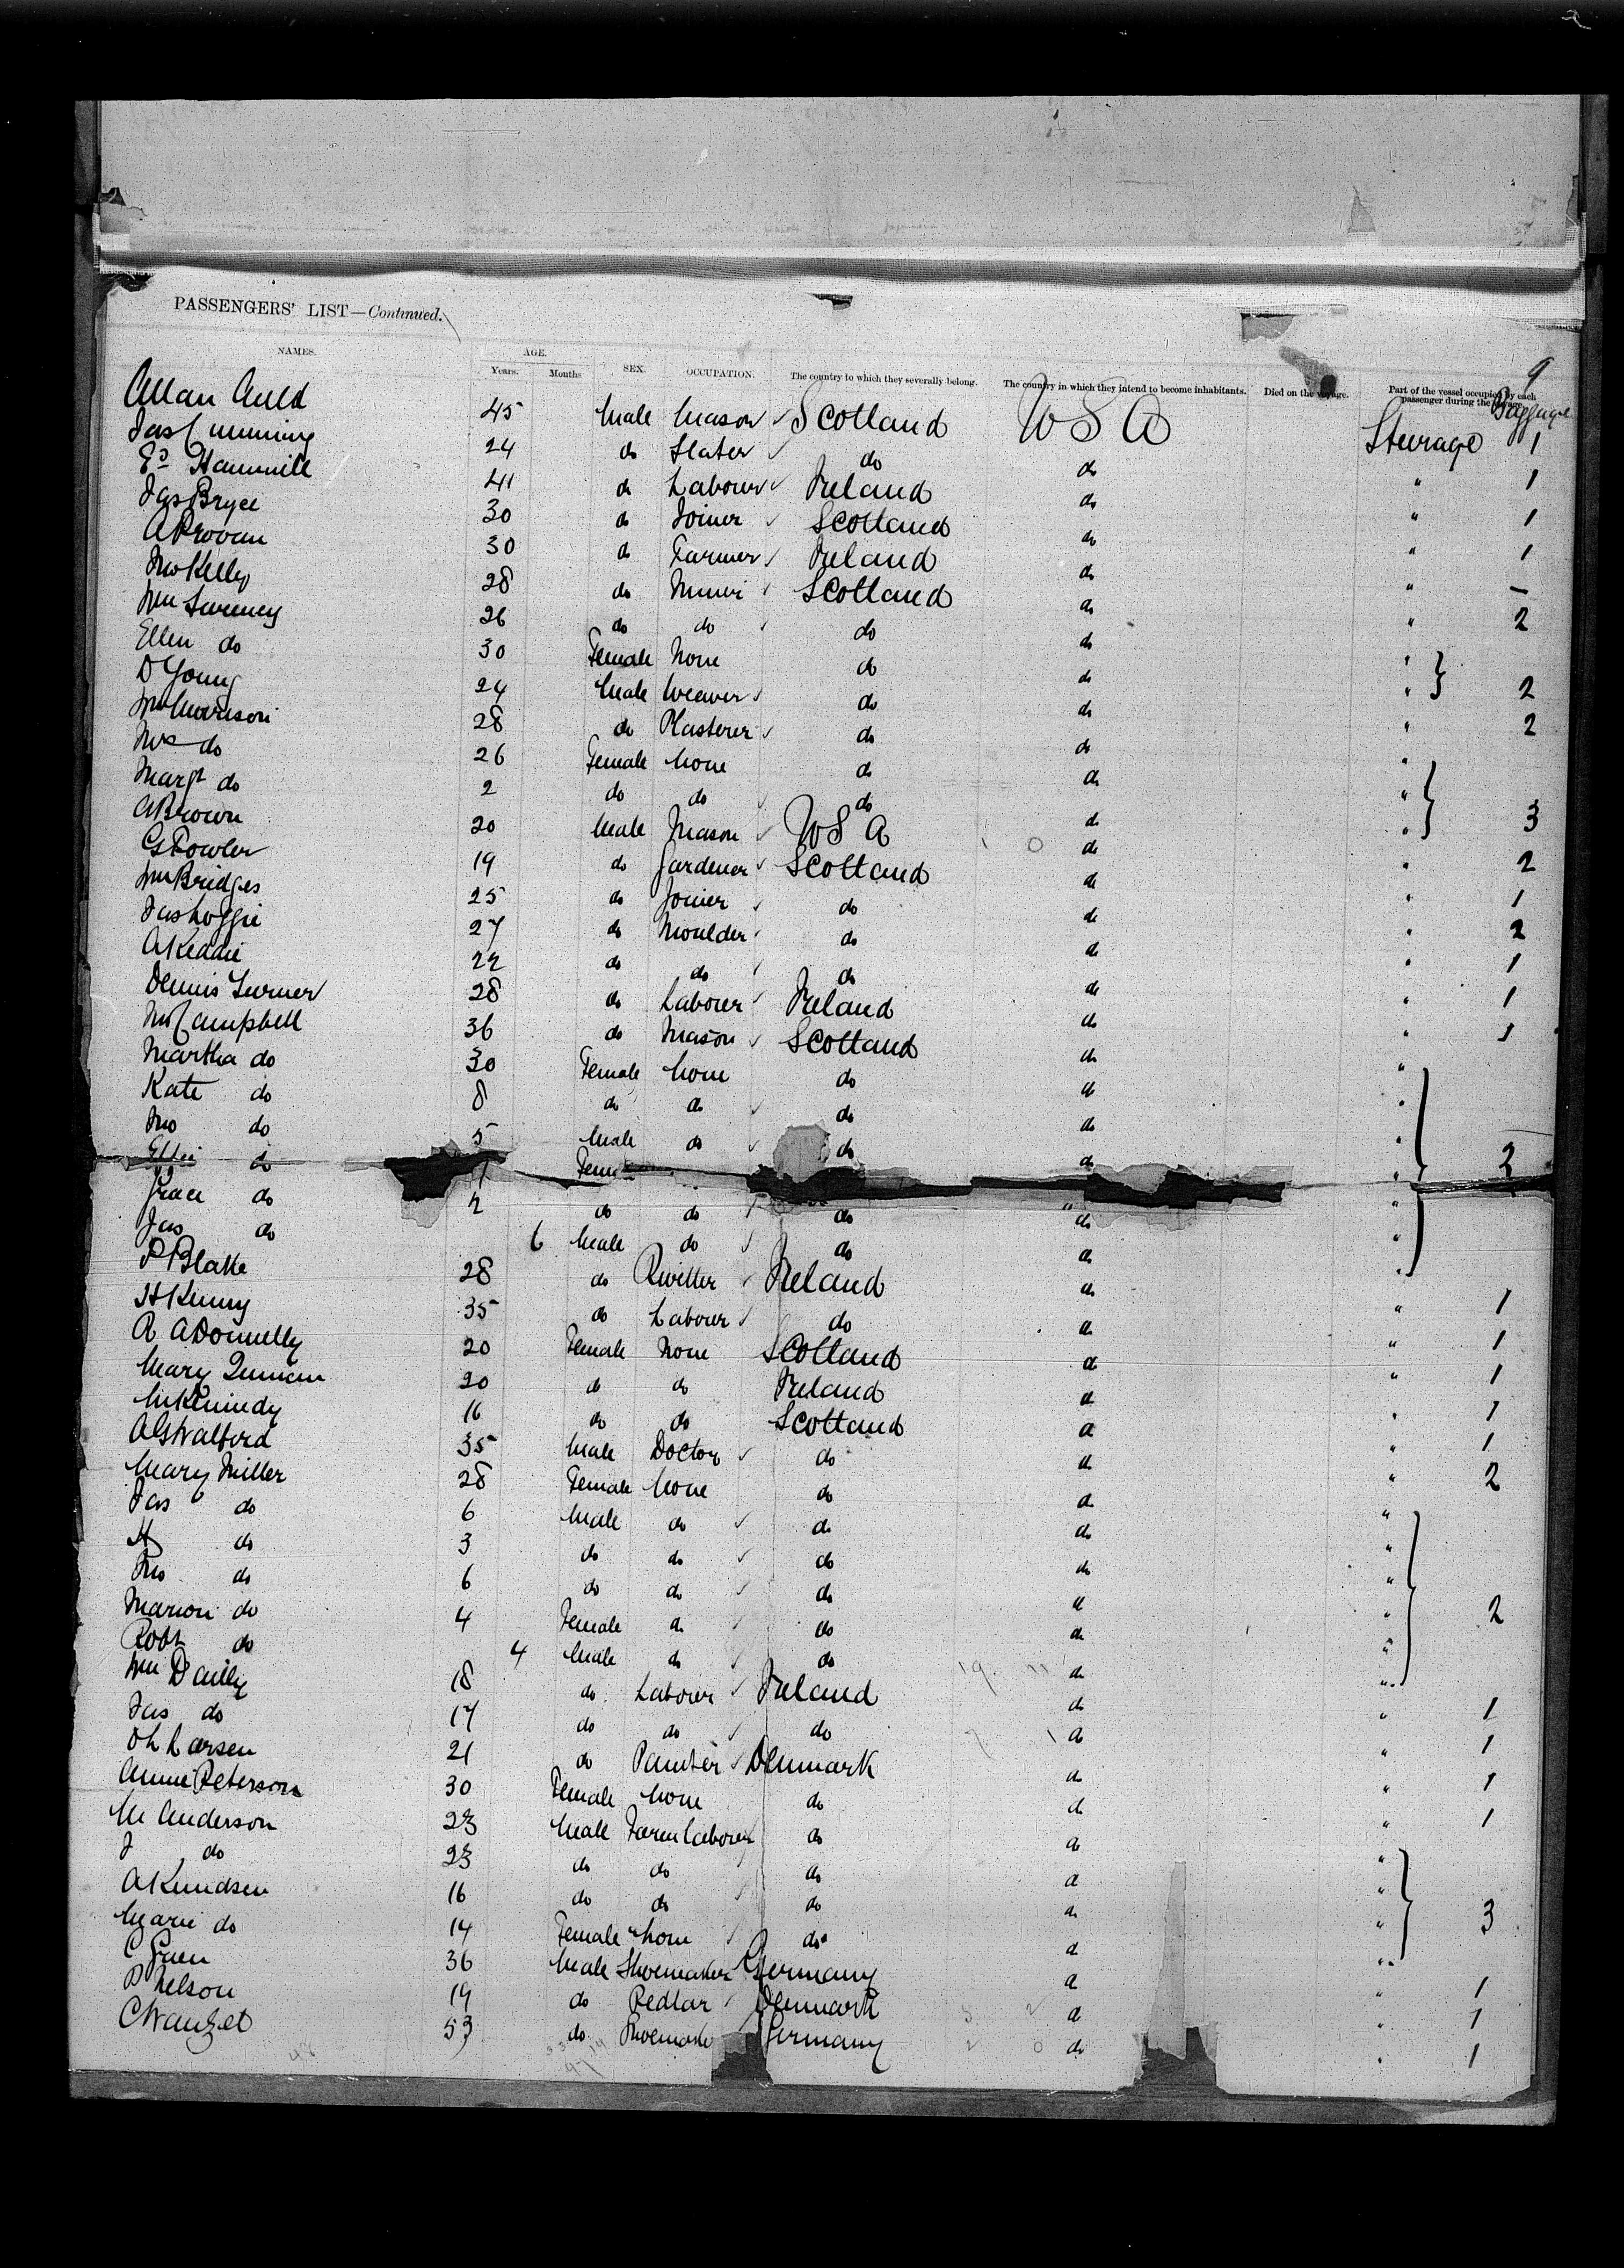 PASSENGERS' LIST—Continued.
9
NAMES. AGE. Years. Months SEX. OCCUPATION. The country to which they severally belong. The country in which they intend to become inhabitants. Died on the voyage. Part of the vessel occupied by each passenger during the voyage. Baggage
Allan Auld 45 Male Mason Scotland USA Steerage 1
Jas Cumming 24 do Slater do do " 1
Ed Hammill 41 do Labourer Ireland do " 1
Jas Bryce 30 do Joiner Scotland do " 1
A Provan 30 do Farmer Ireland do " —
Jno Kelly 28 do Miner Scotland do " 2
Wm Sweeney 26 do do do do "
Ellen do 30 Female None do do " 2
D Young 24 Male Weaver do do " 2
Wm Morrison 28 do Plasterer do do "
Mrs do 26 Female None do do "
Margt do 2 do do do do " 3
A Brown 20 Male Mason USA do " 2
G Fowler 19 do Gardener Scotland do " 1
Wm Bridges 25 do Joiner do do " 2
Jas Loggie 27 do Moulder do do " 1
A Keddie 22 do do do do " 1
Dennis Turner 28 do Labourer Ireland do " 1
Jno Campbell 36 do Mason Scotland do "
Martha do 30 Female None do do "
Kate do 8 do do do do "
Jno do 5 Male do do do " 3
Ellen do Fem
Grace do 2 do do do do "
Jas do 6 Male do do do "
P Blake 28 do Rivetter Ireland do " 1
H Kenny 35 do Labourer do do " 1
R A Donnelly 20 Female None Scotland do " 1
Mary 20 do do Ireland do " 1
M Kennedy 16 do do Scotland do " 1
A G Walford 35 Male Doctor do do " 2
Mary Miller 28 Female None do do "
Jas do 6 Male do do do "
H do 3 do do do do "
Jno do 6 do do do do " 2
Marion do 4 Female do do do "
Robt do 4 Male do do do "
Wm Dailly 18 do Labourer Ireland do " 1
Jas do 17 do do do do " 1
Larsen 21 do Painter Denmark do " 1
Annie Peterson 30 Female None do do " 1
M Anderson 23 Male Farm Labourer do do "
J do 23 do do do do "
A Knudsen 16 do do do do " 3
Marie do 14 Female None do do "
C Green 36 Male Shoemaker Germany do " 1
P Nelson 19 do Pedlar Denmark do " 1
C Wanzel 53 do Shoemaker Germany do " 1